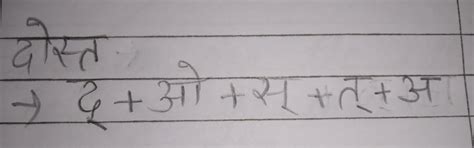 दोस्त
→ द् + ओ + स् + त् + अ